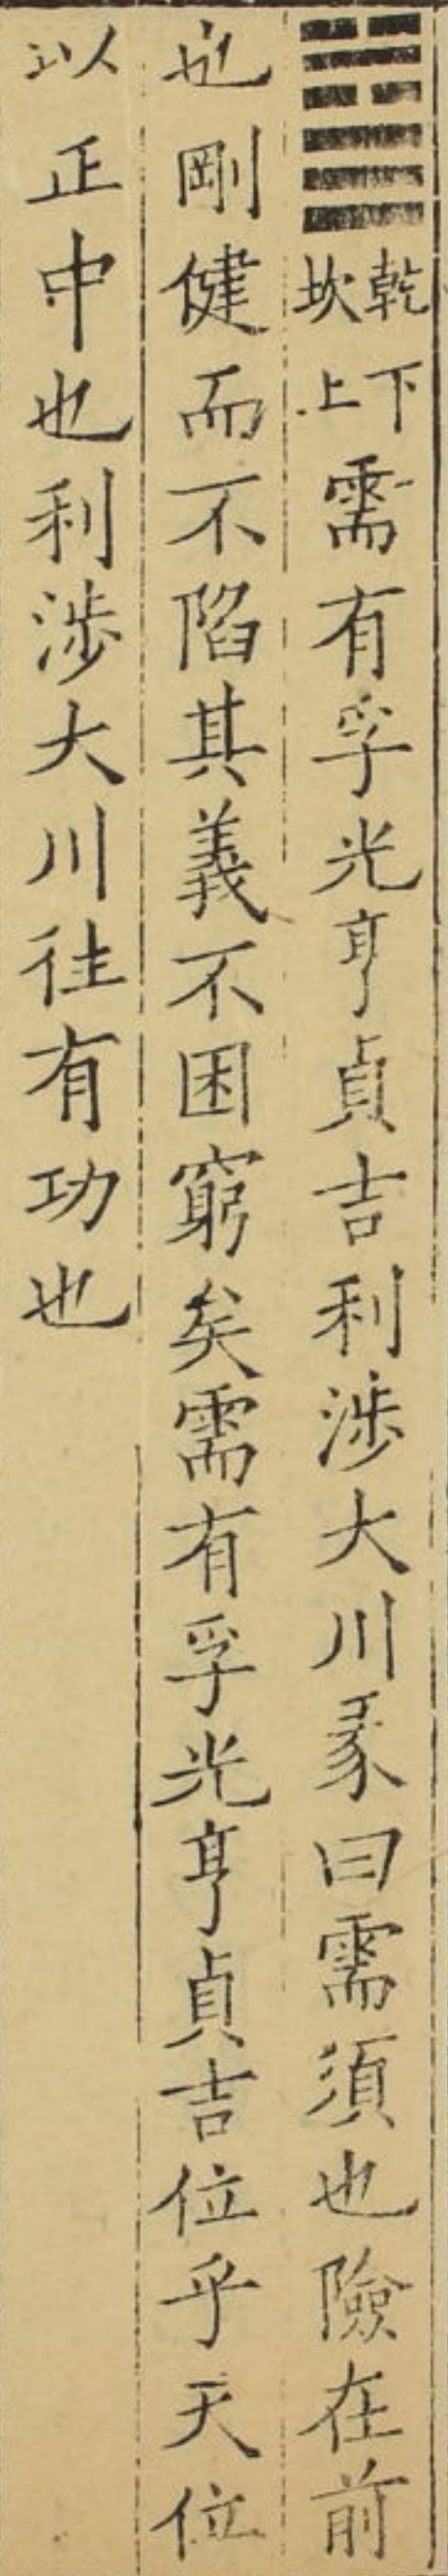 ䷄乾下坎上需有孚光亨貞吉利涉大川彖曰需須也險在前
也剛健而不陷其義不困窮矣需有孚光亨貞吉位乎天位
以正中也利涉大川往有功也